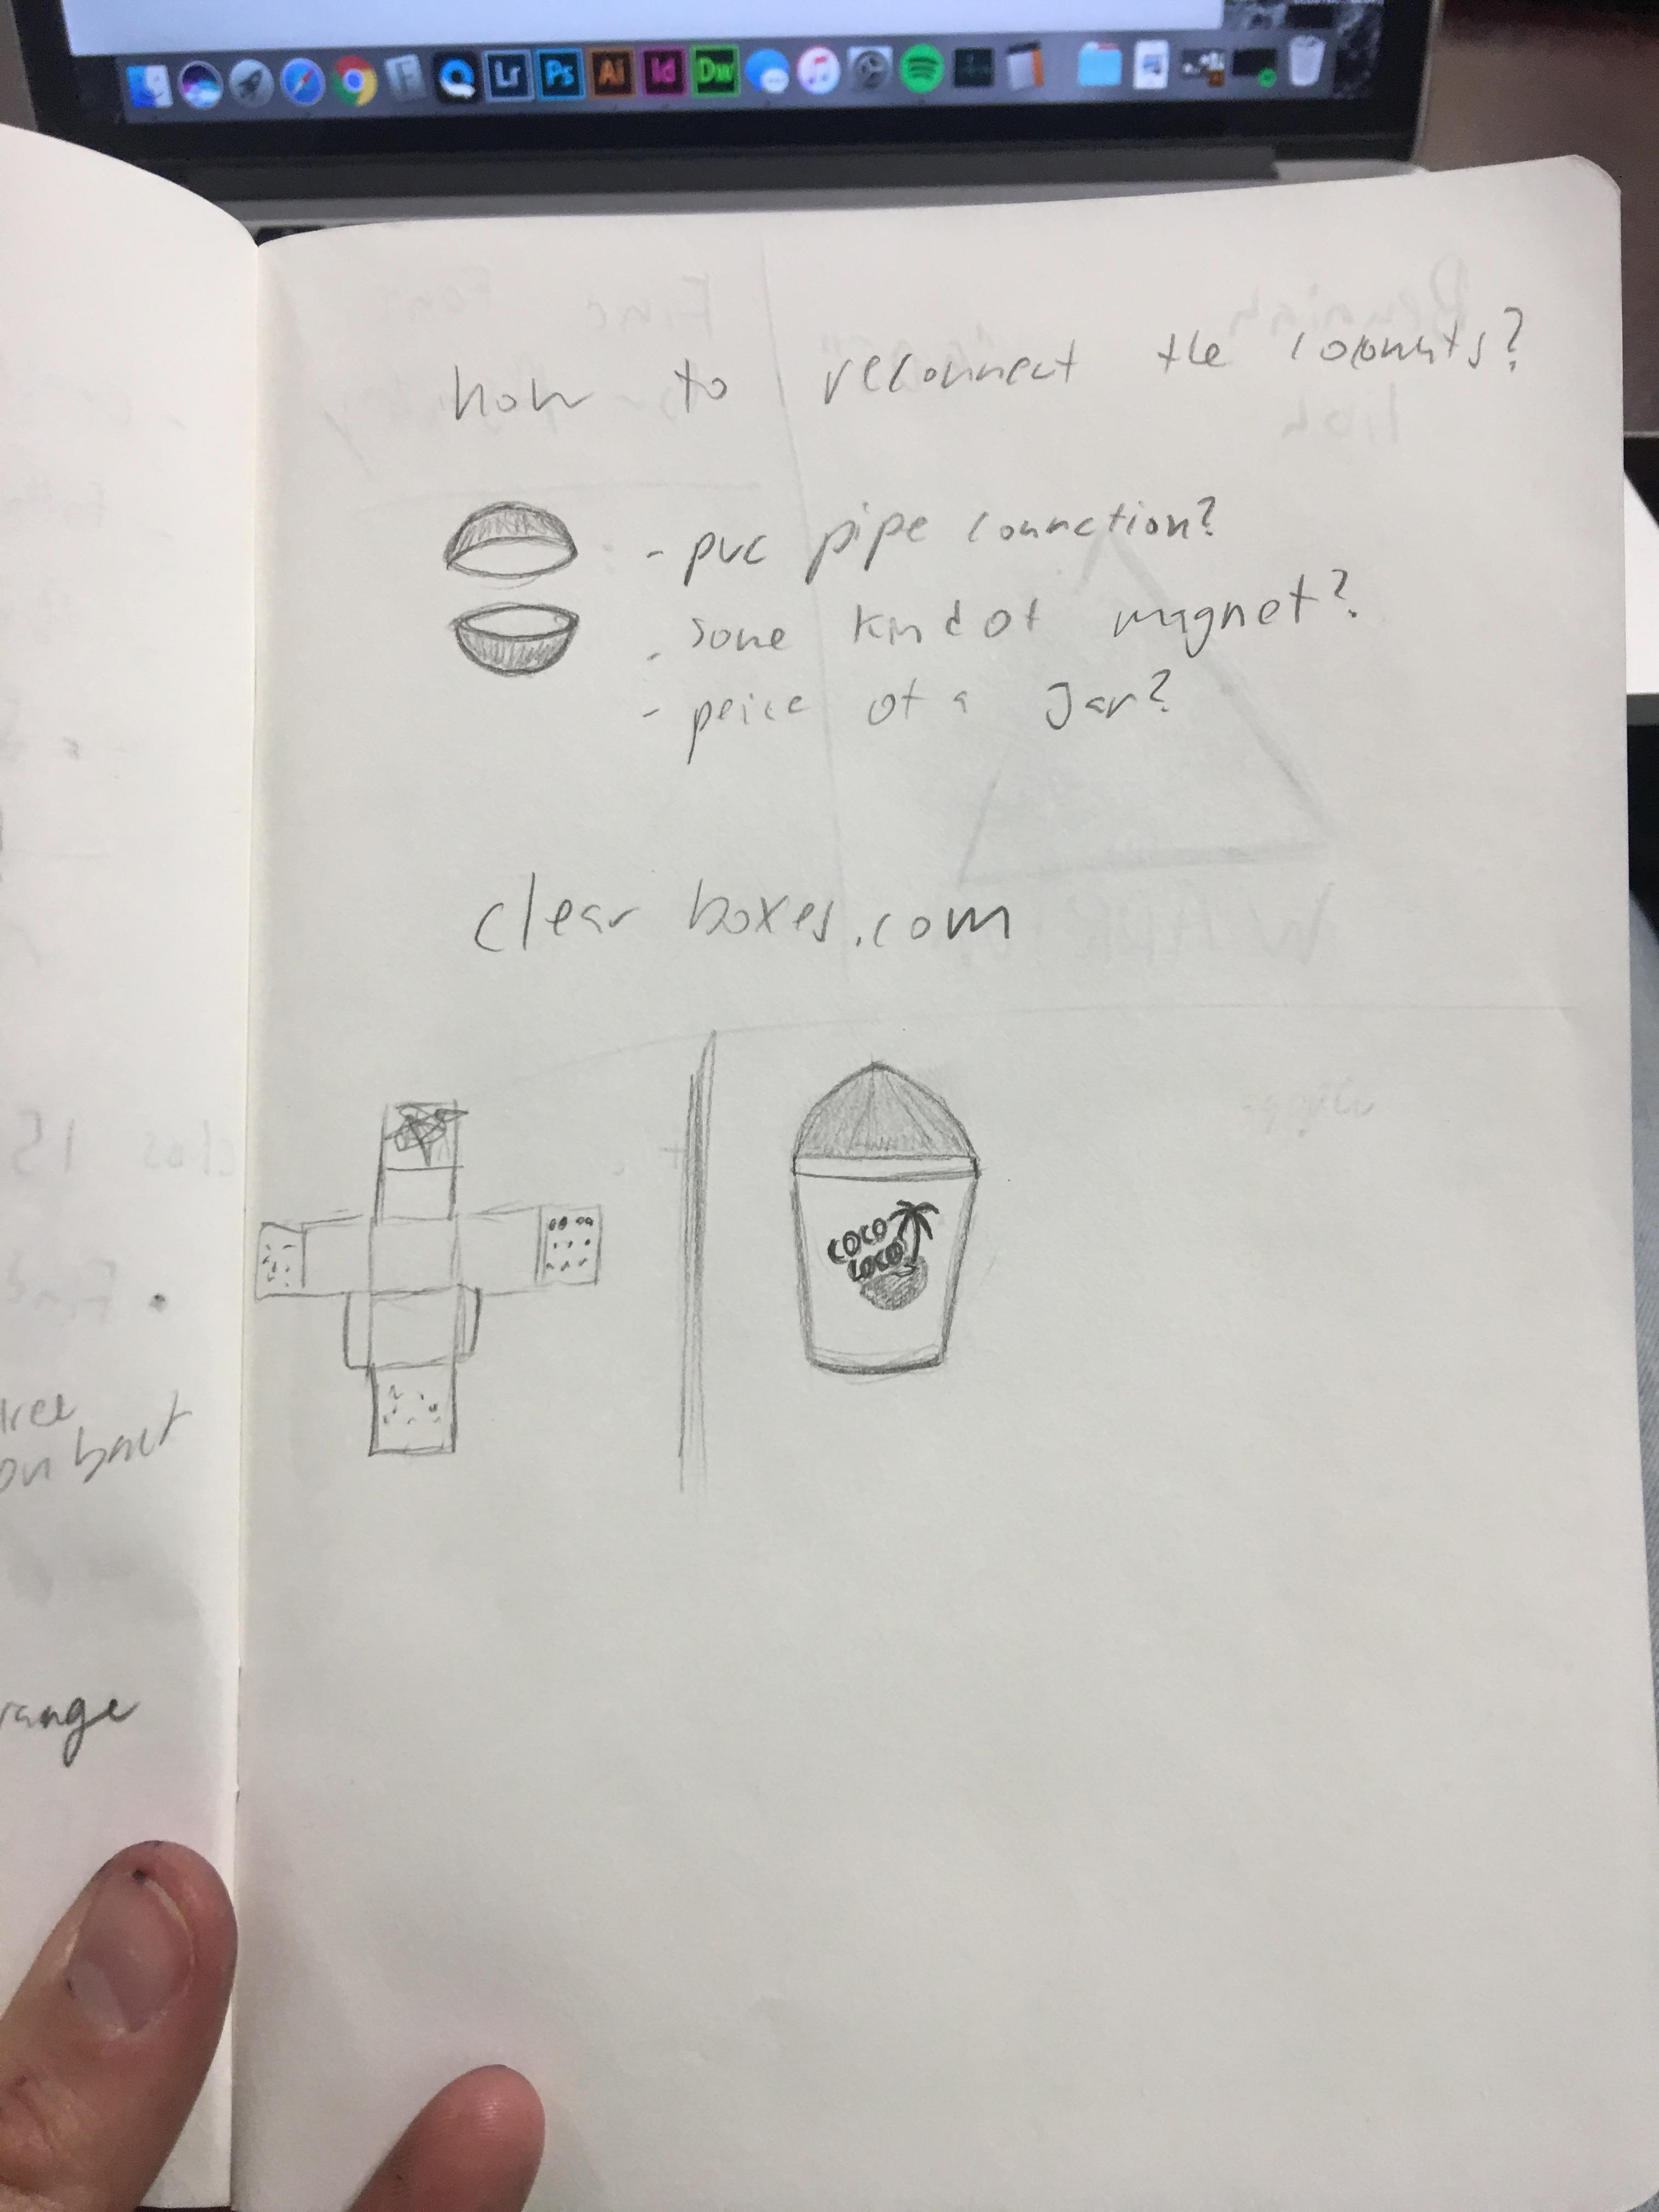 Lr Ps Ai Id Dw
how to reconnect the coconuts?
- pvc pipe connection?
- some kind of magnet?
- peice of a Jar?
clear boxes.com
COCO
LOCO
tree
on back
range